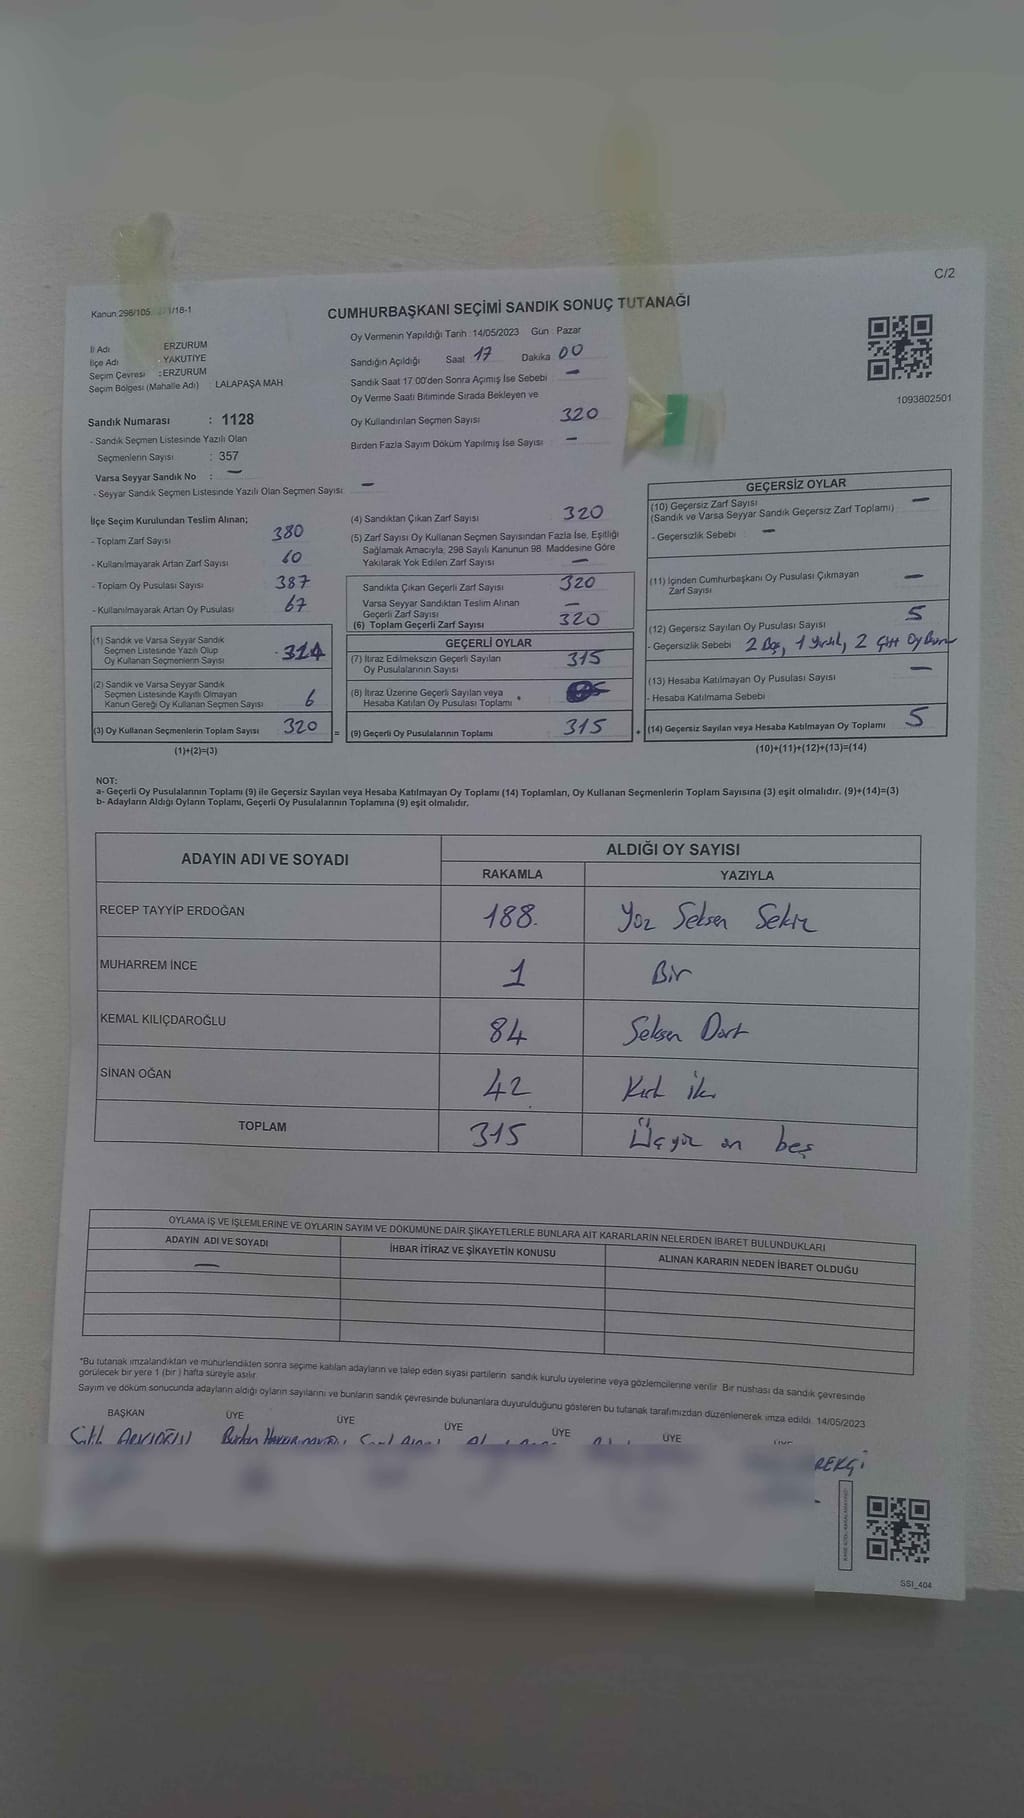 C/2
Kanun 298/105
/18-1
CUMHURBAŞKANI SEÇİMİ SANDIK SONUÇ TUTANAĞI
İl Adı : ERZURUM
İlçe Adı : YAKUTİYE
Seçim Çevresi : ERZURUM
Seçim Bölgesi (Mahalle Adı) : LALAPAŞA MAH
Sandık Numarası : 1128
- Sandık Seçmen Listesinde Yazılı Olan
Seçmenlerin Sayısı : 357
Varsa Seyyar Sandık No : —
- Seyyar Sandık Seçmen Listesinde Yazılı Olan Seçmen Sayısı: —
Oy Vermenin Yapıldığı Tarih : 14/05/2023 Gün : Pazar
Sandığın Açıldığı Saat 17 Dakika 00
Sandık Saat 17.00'den Sonra Açımış İse Sebebi —
Oy Verme Saati Bitiminde Sırada Bekleyen ve
Oy Kullandırılan Seçmen Sayısı 320
Birden Fazla Sayım Döküm Yapılmış İse Sayısı: —
1093802501
İlçe Seçim Kurulundan Teslim Alınan;
- Toplam Zarf Sayısı 380
- Kullanılmayarak Artan Zarf Sayısı 60
- Toplam Oy Pusulası Sayısı 387
- Kullanılmayarak Artan Oy Pusulası 67
(1) Sandık ve Varsa Seyyar Sandık
Seçmen Listesinde Yazılı Olup
Oy Kullanan Seçmenlerin Sayısı 314
(2) Sandık ve Varsa Seyyar Sandık
Seçmen Listesinde Kayıtlı Olmayan
Kanun Gereği Oy Kullanan Seçmen Sayısı 6
(3) Oy Kullanan Seçmenlerin Toplam Sayısı 320 =
(1)+(2)=(3)
(4) Sandıktan Çıkan Zarf Sayısı 320
(5) Zarf Sayısı Oy Kullanan Seçmen Sayısından Fazla İse, Eşitliği
Sağlamak Amacıyla; 298 Sayılı Kanunun 98. Maddesine Göre
Yakılarak Yok Edilen Zarf Sayısı —
Sandıkta Çıkan Geçerli Zarf Sayısı 320
Varsa Seyyar Sandıktan Teslim Alınan
Geçerli Zarf Sayısı —
(6) Toplam Geçerli Zarf Sayısı 320
GEÇERLİ OYLAR
(7) İtiraz Edilmeksizin Geçerli Sayılan
Oy Pusulalarının Sayısı 315
(8) İtiraz Üzerine Geçerli Sayılan veya
Hesaba Katılan Oy Pusulası Toplamı
(9) Geçerli Oy Pusulalarının Toplamı 315 +
GEÇERSİZ OYLAR
(10) Geçersiz Zarf Sayısı
(Sandık ve Varsa Seyyar Sandık Geçersiz Zarf Toplamı) —
- Geçersizlik Sebebi —
(11) İçinden Cumhurbaşkanı Oy Pusulası Çıkmayan
Zarf Sayısı —
(12) Geçersiz Sayılan Oy Pusulası Sayısı 5
- Geçersizlik Sebebi 2 Boş, 1 Yırtık, 2 Çift Oy
(13) Hesaba Katılmayan Oy Pusulası Sayısı —
- Hesaba Katılmama Sebebi
(14) Geçersiz Sayılan veya Hesaba Katılmayan Oy Toplamı 5
(10)+(11)+(12)+(13)=(14)
NOT:
a- Geçerli Oy Pusulalarının Toplamı (9) ile Geçersiz Sayılan veya Hesaba Katılmayan Oy Toplamı (14) Toplamları, Oy Kullanan Seçmenlerin Toplam Sayısına (3) eşit olmalıdır. (9)+(14)=(3)
b- Adayların Aldığı Oyların Toplamı, Geçerli Oy Pusulalarının Toplamına (9) eşit olmalıdır.
ADAYIN ADI VE SOYADI ALDIĞI OY SAYISI
RAKAMLA YAZIYLA
RECEP TAYYİP ERDOĞAN 188. Yüz Seksen Sekiz
MUHARREM İNCE 1 Bir
KEMAL KILIÇDAROĞLU 84 Seksen Dört
SİNAN OĞAN 42 Kırk iki
TOPLAM 315 Üçyüz on beş
OYLAMA İŞ VE İŞLEMLERİNE VE OYLARIN SAYIM VE DÖKÜMÜNE DAİR ŞİKAYETLERLE BUNLARA AİT KARARLARIN NELERDEN İBARET BULUNDUKLARI
ADAYIN ADI VE SOYADI İHBAR İTİRAZ VE ŞİKAYETİN KONUSU ALINAN KARARIN NEDEN İBARET OLDUĞU
—
*Bu tutanak imzalandıktan ve mühürlendikten sonra seçime katılan adayların ve talep eden siyasi partilerin sandık kurulu üyelerine veya gözlemcilerine verilir. Bir nüshası da sandık çevresinde
görülecek bir yere 1 (bir) hafta süreyle asılır.
Sayım ve döküm sonucunda adayların aldığı oyların sayılarını ve bunların sandık çevresinde bulunanlara duyurulduğunu gösteren bu tutanak tarafımızdan düzenlenerek imza edildi. 14/05/2023
BAŞKAN ÜYE ÜYE ÜYE ÜYE ÜYE ÜYE
SSI_404